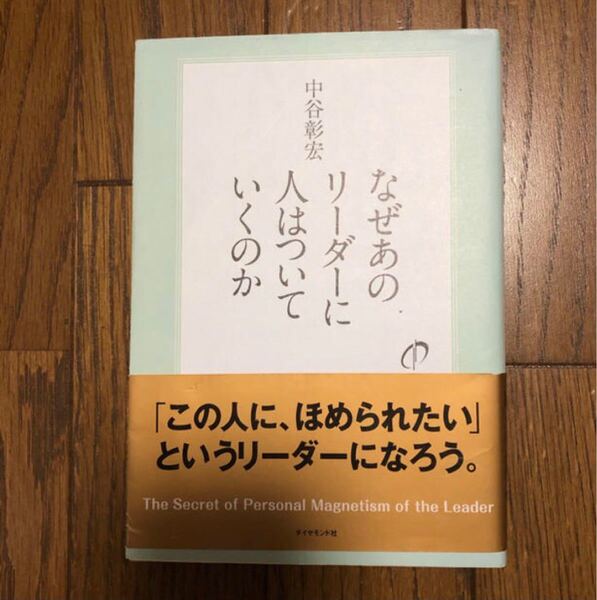 なぜあの
リーダーに
人はついて
いくのか
中谷彰宏
「この人に、ほめられたい」
というリーダーになろう。
The Secret of Personal Magnetism of the Leader
ダイヤモンド社